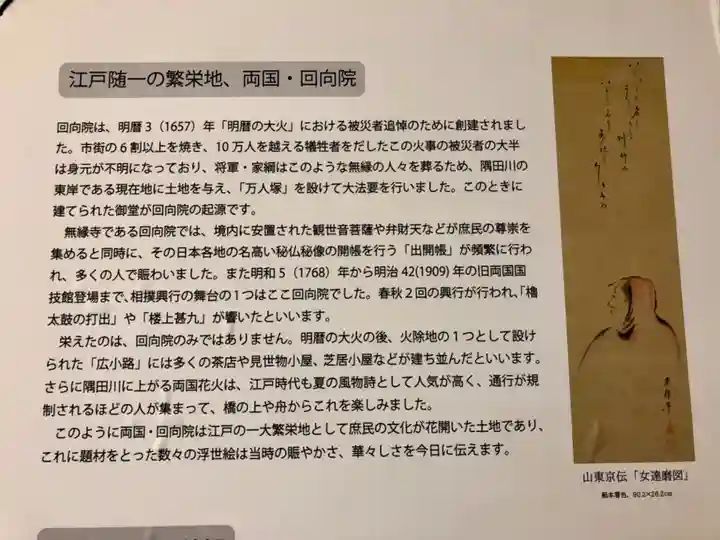 江戸随一の繁栄地、両国・回向院
回向院は、明暦３（1657）年「明暦の大火」における被災者追悼のために創建されまし
た。市街の６割以上を焼き、10 万人を越える犠牲者をだしたこの火事の被災者の大半
は身元が不明になっており、将軍・家綱はこのような無縁の人々を葬るため、隅田川の
東岸である現在地に土地を与え、「万人塚」を設けて大法要を行いました。このときに
建てられた御堂が回向院の起源です。
無縁寺である回向院では、境内に安置された観世音菩薩や弁財天などが庶民の尊崇を
集めると同時に、その日本各地の名高い秘仏秘像の開帳を行う「出開帳」が頻繁に行わ
れ、多くの人で賑わいました。また明和５（1768）年から明治 42(1909) 年の旧両国国
技館登場まで、相撲興行の舞台の１つはここ回向院でした。春秋２回の興行が行われ、「櫓
太鼓の打出」や「楼上甚九」が響いたといいます。
栄えたのは、回向院のみではありません。明暦の大火の後、火除地の１つとして設け
られた「広小路」には多くの茶店や見世物小屋、芝居小屋などが建ち並んだといいます。
さらに隅田川に上がる両国花火は、江戸時代も夏の風物詩として人気が高く、通行が規
制されるほどの人が集まって、橋の上や舟からこれを楽しみました。
このように両国・回向院は江戸の一大繁栄地として庶民の文化が花開いた土地であり、
これに題材をとった数々の浮世絵は当時の賑やかさ、華々しさを今日に伝えます。
山東京伝「女達磨図」
紙本着色、90.2×26.2cm